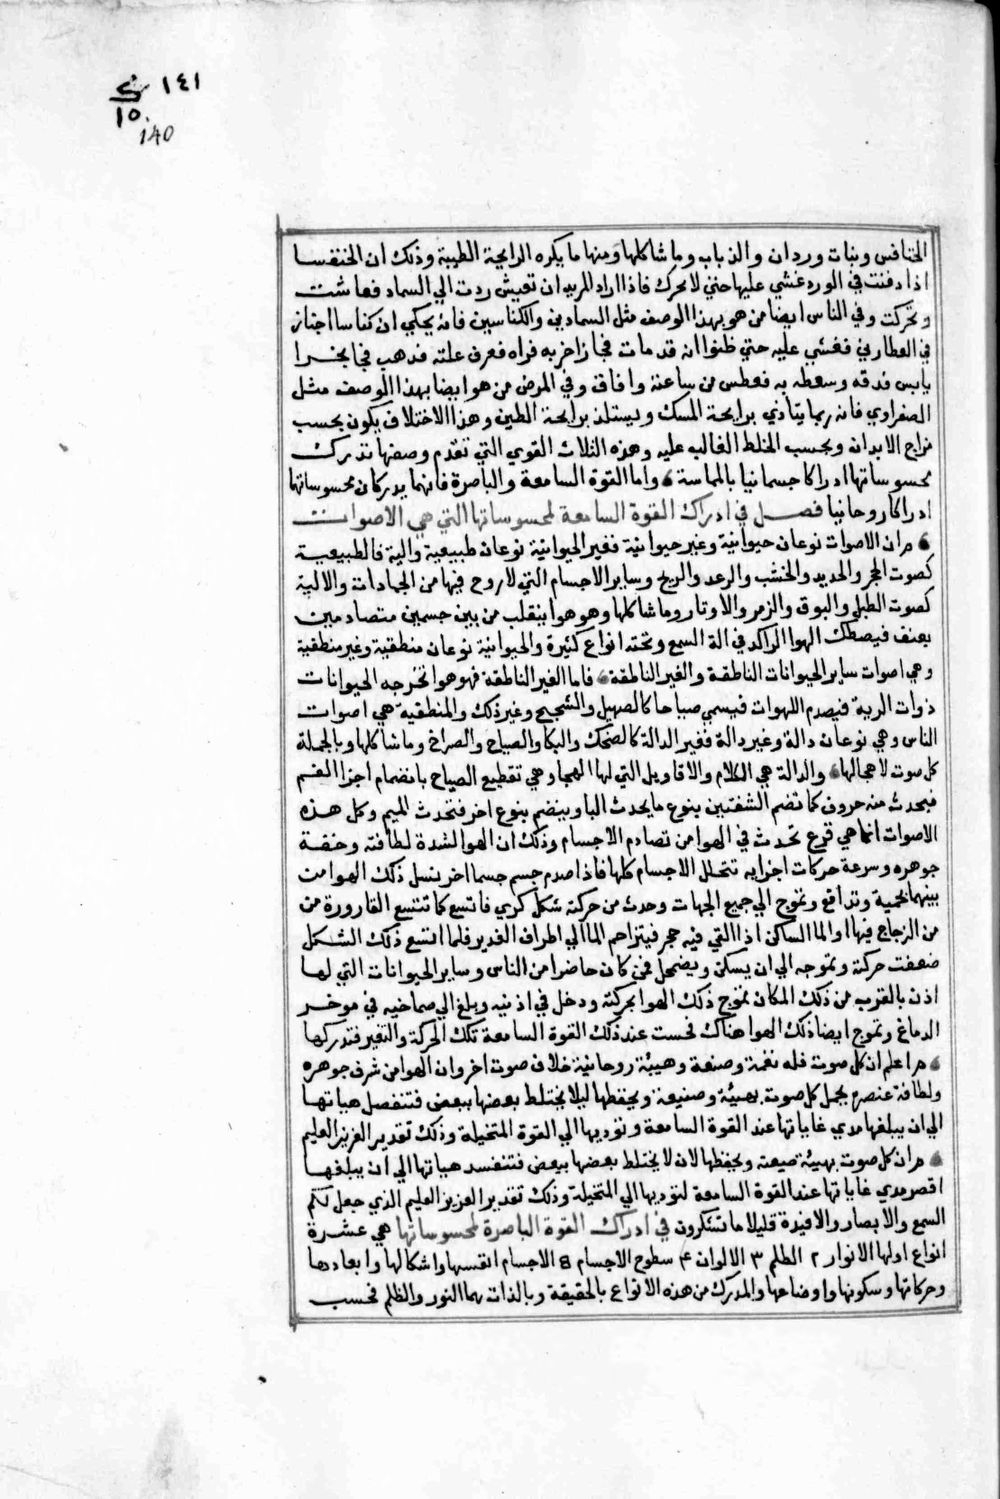 ١٤١
١٥
140
الخنافس وبنات وردان والذباب وما شاكلها ومنها ما يكره الرايحة الطيبة وذلك ان الخنفسا
اذا دفنت في الورد غشي عليها حتي لا تحرك فاذا اراد المريد ان تعيش ردت الي السماد فعاشت
وتحركت وفي الناس ايضا من هو بهذا الوصف مثل السمادين والكناسين فانه يحكي ان كناسا اجتاز
في العطارين فغشي عليه حتي ظنوا ان قد مات فجاز اخر به فراه فعرف علته فذهب فجا بخرا
يابس فدقه وسعطه به فعطس من ساعته وافاق وفي المرض من هو ايضا بهذا الوصف مثل
الصفراوي فانه ربما يتاذي برايحة المسك ويستلذ برايحة الطين وهذا الاختلاف يكون بحسب
مزاج الابدان وبحسب الخلط الغالب عليه وهذه الثلاث القوي التي تقدم وصفها تدرك
محسوساتها ادراكا جسمانيا بالمماسة واما القوة السامعة والباصرة فانهما يدركان محسوساتها
ادراكا روحانيا فصل في ادراك القوة السامعة لمحسوساتها التي هي الاصوات
مر ان الاصوات نوعان حيوانية وغير حيوانية فغير الحيوانية نوعان طبيعية والية فالطبيعية
كصوت الحجر والحديد والخشب والرعد والريح وساير الاجسام التي لا روح فيها من الجمادات والالية
كصوت الطبل والبوق والزمر والاوتار وما شاكلها وهو هوا ينقلب من بين جسمين متصادمين
بعنف فيصطك الهوا الراكد في الة السمع وتحته انواع كثيرة والحيوانية نوعان منطقية وغير منطقية
وهي اصوات ساير الحيوانات الناطقة والغير الناطقة فاما الغير الناطقة فهو هوا تخرجه الحيوانات
ذوات الرية فيصدم اللهوات فيسمي صياحا كالصهيل والشحيج وغير ذلك والمنطقية هي اصوات
الناس وهي نوعان دالة وغير دالة فغير الدالة كالضحك والبكا والصياح والصراخ وما شاكلها وبالجملة
كل صوت لا هجا لها والدالة هي الكلام والاقاويل التي لها الهجا وهي تقطيع الصياح بانضمام اجزا الفم
فيحدث منه حروف كما تضم الشفتين بنوع ما يحدث البا وبينضم بنوع اخر فتحدث الميم وكل هذه
الاصوات انما هي قرع تحدث في الهوا من تصادم الاجسام وذلك ان الهوا لشدة لطافته وخفة
جوهره وسرعة حركات اجزايه تتخلل الاجسام كلها فاذا صدم جسم جسما اخر ينسل ذلك الهوا من
بينهما بحمية وتدافع وتموج الي جميع الجهات وحدث من حركته شكل كري فاتسع كما تتسع القارورة من
من الزجاج فيها او الما الساكن اذا القي فيه حجر فيتزاحم الما الي اطراف الغدير فلما اتسع ذلك الشكل
ضعفت حركته وتموجه الي ان يسكن ويضمحل فمن كان حاضرا من الناس وساير الحيوانات التي لها
اذن بالقرب من ذلك المكان تموج ذلك الهوا بحركته ودخل في اذنيه وبلغ الي صماخيه في موخر
الدماغ وتموج ايضا ذلك الهوا هناك فحست عند ذلك القوة السامعة تلك الحركة والتغير فتدركها
مر اعلم ان كل صوت فله نغمة وصنعة وهيئة روحانية خلاف صوت اخر وان الهوا من شرف جوهره
ولطافة عنصره يحمل كل صوت بهيئة وصنيعة ويحفظها ليلا يختلط بعضها ببعض فتنفصل هياتها
الي ان يبلغها مدي غاياتها عند القوة السامعة وتوديها الي القوة المتخيلة وذلك تقدير العزيز العليم
مر ان كل صوت بهيئة صيعته ويحفظها لان لا يختلط بعضها ببعض فتنفسد هياتها الي ان يبلغها
اقصر مدي غاياتها عند القوة السامعة لتوديها الي المتخيلة وذلك تقدير العزيز العليم الذي جعل لكم
السمع والابصار والافيدة قليلا ما تشكرون في ادراك القوة الباصرة لمحسوساتها هي عشرة
انواع اولها الانوار ٢ الظلم ٣ الالوان ۴ سطوح الاجسام ٥ الاجسام انفسها واشكالها وابعادها
وحركاتها وسكونها واوضاعها والمدرك من هذه الانواع بالحقيقة وبالذات بهما النور والظلم فحسب